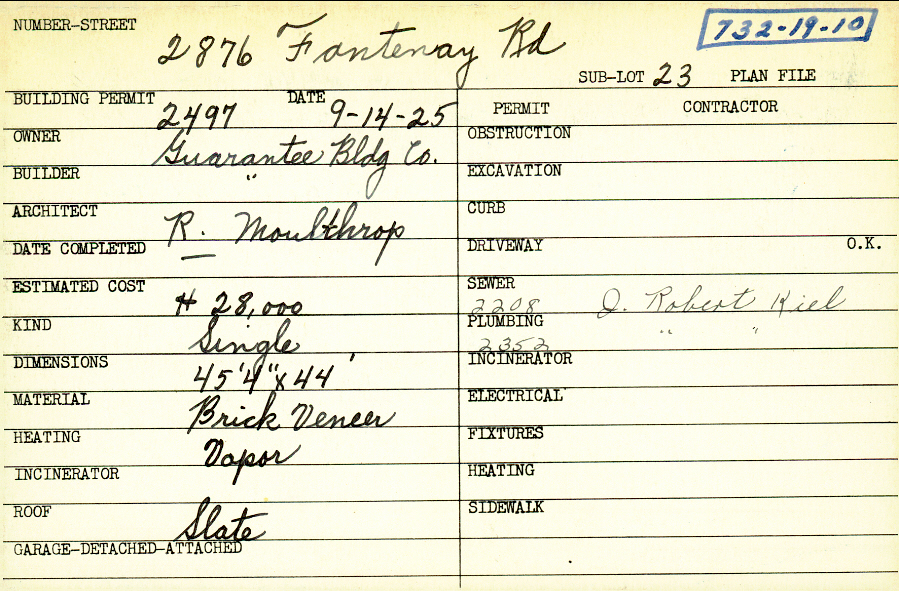 NUMBER-STREET 2876 Fontenay Rd 732-19-10
SUB-LOT 23 PLAN FILE
BUILDING PERMIT 2497 DATE 9-14-25
OWNER Guarantee Bldg Co.
BUILDER "
ARCHITECT R. Moulthrop
DATE COMPLETED —
ESTIMATED COST $ 28,000
KIND Single
DIMENSIONS 45'4" x 44'
MATERIAL Brick Veneer
HEATING Vapor
INCINERATOR
ROOF Slate
GARAGE-DETACHED-ATTACHED
PERMIT CONTRACTOR
OBSTRUCTION
EXCAVATION
CURB
DRIVEWAY O.K.
SEWER 2208 J. Robert Kiel
PLUMBING 2352 " "
INCINERATOR
ELECTRICAL
FIXTURES
HEATING
SIDEWALK